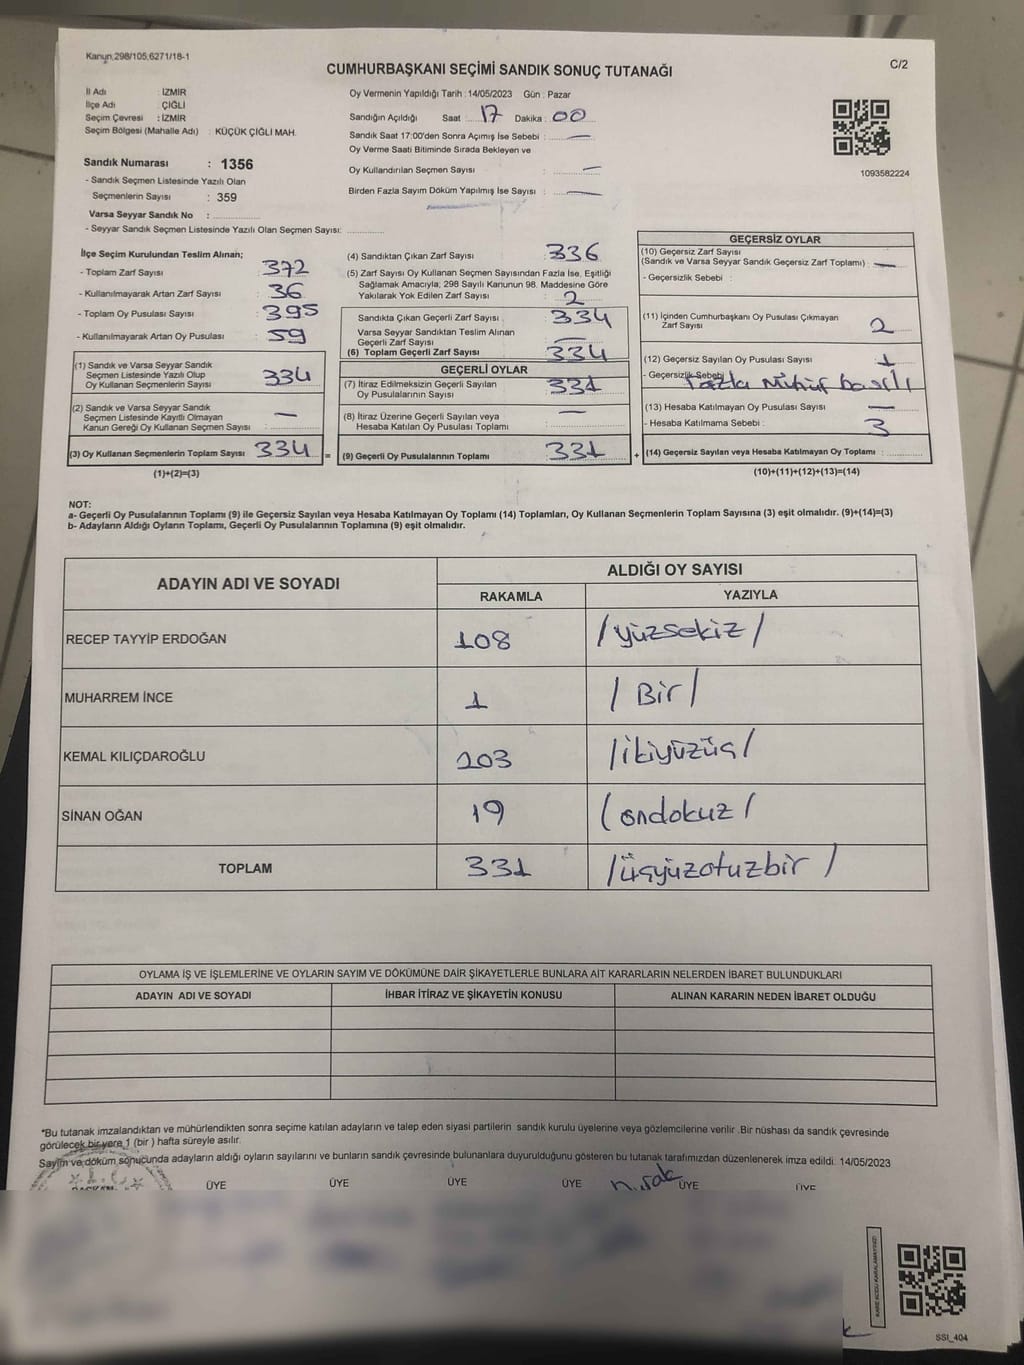 Kanun;298/105;6271/18-1
C/2
CUMHURBAŞKANI SEÇİMİ SANDIK SONUÇ TUTANAĞI
İl Adı : İZMİR
İlçe Adı : ÇİĞLİ
Seçim Çevresi : İZMİR
Seçim Bölgesi (Mahalle Adı) : KÜÇÜK ÇİĞLİ MAH.
Sandık Numarası : 1356
- Sandık Seçmen Listesinde Yazılı Olan
Seçmenlerin Sayısı : 359
Varsa Seyyar Sandık No :
- Seyyar Sandık Seçmen Listesinde Yazılı Olan Seçmen Sayısı:
Oy Vermenin Yapıldığı Tarih : 14/05/2023 Gün : Pazar
Sandığın Açıldığı Saat : 17 Dakika : 00
Sandık Saat 17:00'den Sonra Açımış İse Sebebi : —
Oy Verme Saati Bitiminde Sırada Bekleyen ve
Oy Kullandırılan Seçmen Sayısı : —
Birden Fazla Sayım Döküm Yapılmış İse Sayısı : —
1093582224
İlçe Seçim Kurulundan Teslim Alınan;
- Toplam Zarf Sayısı : 372
- Kullanılmayarak Artan Zarf Sayısı : 36
- Toplam Oy Pusulası Sayısı : 395
- Kullanılmayarak Artan Oy Pusulası : 59
(1) Sandık ve Varsa Seyyar Sandık
Seçmen Listesinde Yazılı Olup
Oy Kullanan Seçmenlerin Sayısı : 334
(2) Sandık ve Varsa Seyyar Sandık
Seçmen Listesinde Kayıtlı Olmayan
Kanun Gereği Oy Kullanan Seçmen Sayısı : —
(3) Oy Kullanan Seçmenlerin Toplam Sayısı : 334 =
(1)+(2)=(3)
(4) Sandıktan Çıkan Zarf Sayısı : 336
(5) Zarf Sayısı Oy Kullanan Seçmen Sayısından Fazla İse, Eşitliği
Sağlamak Amacıyla; 298 Sayılı Kanunun 98. Maddesine Göre
Yakılarak Yok Edilen Zarf Sayısı : 2
Sandıkta Çıkan Geçerli Zarf Sayısı : 334
Varsa Seyyar Sandıktan Teslim Alınan
Geçerli Zarf Sayısı : —
(6) Toplam Geçerli Zarf Sayısı : 334
GEÇERLİ OYLAR
(7) İtiraz Edilmeksizin Geçerli Sayılan
Oy Pusulalarının Sayısı : 331
(8) İtiraz Üzerine Geçerli Sayılan veya
Hesaba Katılan Oy Pusulası Toplamı : —
(9) Geçerli Oy Pusulalarının Toplamı : 331 +
GEÇERSİZ OYLAR
(10) Geçersiz Zarf Sayısı
(Sandık ve Varsa Seyyar Sandık Geçersiz Zarf Toplamı) : —
- Geçersizlik Sebebi :
(11) İçinden Cumhurbaşkanı Oy Pusulası Çıkmayan
Zarf Sayısı : 2
(12) Geçersiz Sayılan Oy Pusulası Sayısı : 1
- Geçersizlik Sebebi : Fazla Mühür basılı
(13) Hesaba Katılmayan Oy Pusulası Sayısı : —
- Hesaba Katılmama Sebebi : 3
(14) Geçersiz Sayılan veya Hesaba Katılmayan Oy Toplamı :
(10)+(11)+(12)+(13)=(14)
NOT:
a- Geçerli Oy Pusulalarının Toplamı (9) ile Geçersiz Sayılan veya Hesaba Katılmayan Oy Toplamı (14) Toplamları, Oy Kullanan Seçmenlerin Toplam Sayısına (3) eşit olmalıdır. (9)+(14)=(3)
b- Adayların Aldığı Oyların Toplamı, Geçerli Oy Pusulalarının Toplamına (9) eşit olmalıdır.
ADAYIN ADI VE SOYADI
ALDIĞI OY SAYISI
RAKAMLA YAZIYLA
RECEP TAYYİP ERDOĞAN 108 /yüzsekiz/
MUHARREM İNCE 1 /Bir/
KEMAL KILIÇDAROĞLU 203 /ikiyüzüç/
SİNAN OĞAN 19 /ondokuz/
TOPLAM 331 /üçyüzotuzbir/
OYLAMA İŞ VE İŞLEMLERİNE VE OYLARIN SAYIM VE DÖKÜMÜNE DAİR ŞİKAYETLERLE BUNLARA AİT KARARLARIN NELERDEN İBARET BULUNDUKLARI
ADAYIN ADI VE SOYADI İHBAR İTİRAZ VE ŞİKAYETİN KONUSU ALINAN KARARIN NEDEN İBARET OLDUĞU
*Bu tutanak imzalandıktan ve mühürlendikten sonra seçime katılan adayların ve talep eden siyasi partilerin sandık kurulu üyelerine veya gözlemcilerine verilir .Bir nüshası da sandık çevresinde
görülecek bir yere 1 (bir ) hafta süreyle asılır.
Sayım ve döküm sonucunda adayların aldığı oyların sayılarını ve bunların sandık çevresinde bulunanlara duyurulduğunu gösteren bu tutanak tarafımızdan düzenlenerek imza edildi. 14/05/2023
ÜYE ÜYE ÜYE ÜYE ÜYE ÜYE
SSI_404